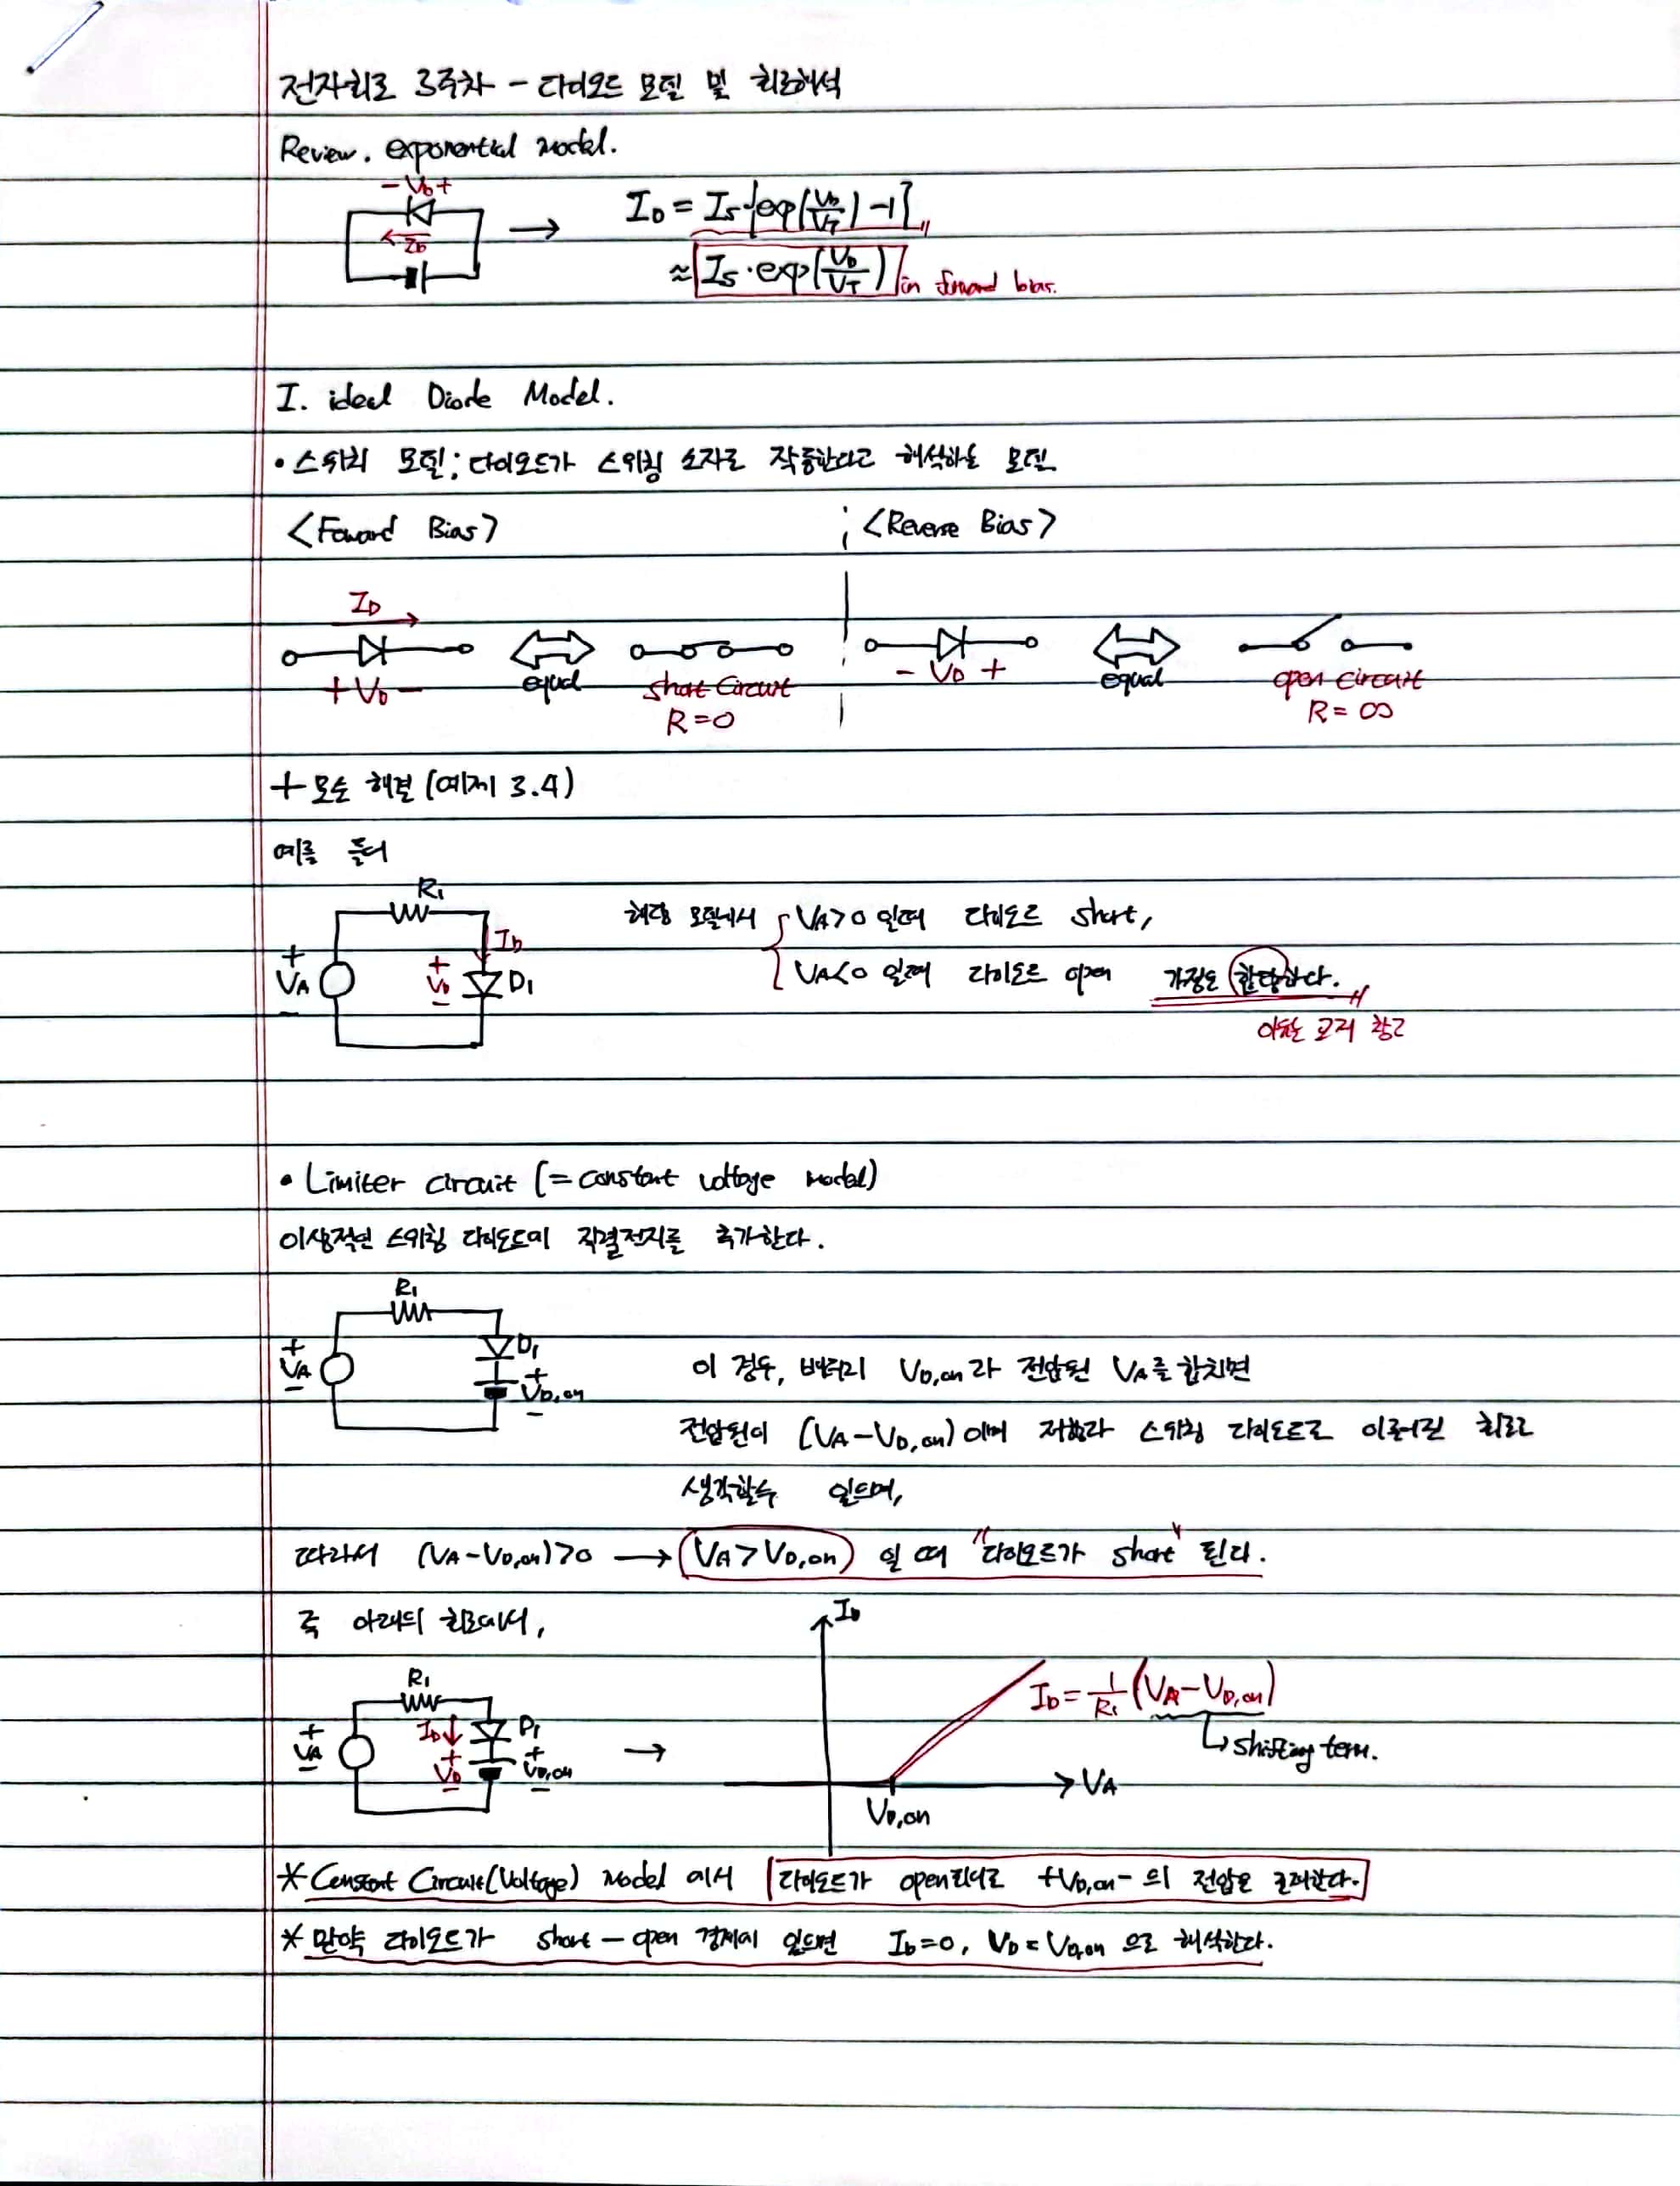 전자회로 3주차 - 다이오드 모델 및 회로해석
Review. exponential model.
- V_D +
I_D
→ I_D = I_S{exp(V_D/V_T) - 1}
≈ I_S·exp(V_D/V_T) in forward bias.
I. ideal Diode Model.
• 스위치 모델; 다이오드가 스위칭 소자로 작동한다고 해석하는 모델
<Foward Bias>
<Reverse Bias>
I_D
+ V_D -
equal
short circuit
R=0
- V_D +
equal
open circuit
R = ∞
+ 모순 해결 (예제 3.4)
예를 들어
R₁
+
V_A
-
I_D
+
V_D
-
D₁
해당 모델에서 { V_A>0 일때 다이오드 short,
V_A<0 일때 다이오드 open 가정은 합당하다.
이유는 교재 참고
• Limiter circuit (= constant voltage model)
이상적인 스위칭 다이오드에 직렬전지를 추가한다.
R₁
+
V_A
-
D₁
+
V_D,on
-
이 경우, 배터리 V_D,on과 전압원 V_A를 합치면
전압원이 (V_A-V_D,on)이며 저항과 스위칭 다이오드로 이루어진 회로
생각할수 있으며,
따라서 (V_A-V_D,on)>0 → V_A>V_D,on 일 때 "다이오드가 short" 된다.
즉 아래의 회로에서,
R₁
+
V_A
-
I_D↓
+
V_D
-
D₁
+
V_D,on
-
→
I_D
I_D = 1/R₁ (V_A-V_D,on)
↳ shifting term.
V_A
V_D,on
* Constant Circuit(Voltage) Model 에서 다이오드가 open되어도 +V_D,on- 의 전압은
* 만약 다이오드가 short-open 경계에 있으면 I_D=0, V_D=V_D,on 으로 해석한다.